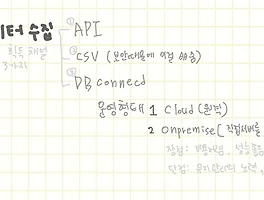 이터 수집
획득 채널
3가지
① API
② CSV (보안때문에 이걸 씀)
③ DB connecd
운영형태 1 Cloud (원격)
2 Onpremise (직접서버를
장점: , 성능좋음
단점: 유지관리의 노력,